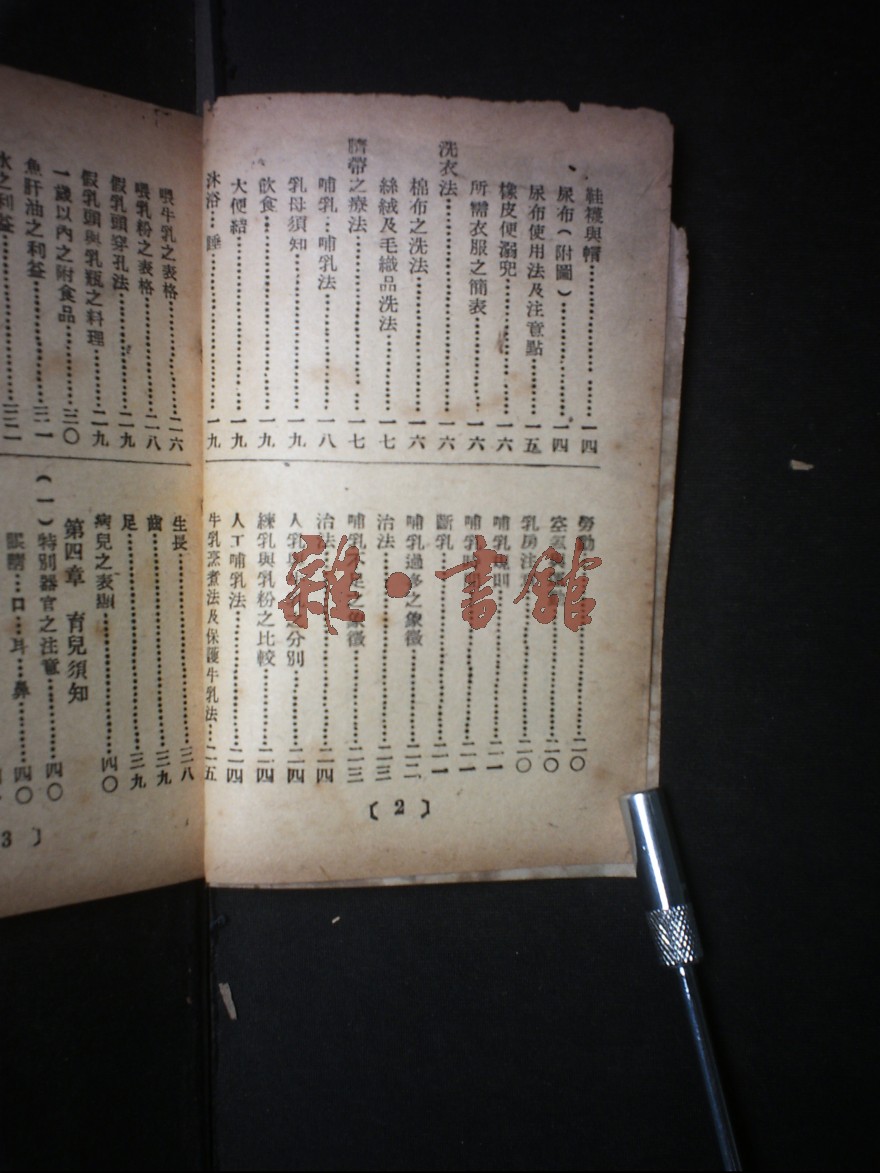 鞋襪與帽……………一四
尿布（附圖）……………一四
尿布使用法及注意點……一五
橡皮便溺兜……………一六
所需衣服之簡表…………一六
洗衣法……………一六
棉布之洗法……………一六
絲絨及毛織品洗法………一七
臍帶之療法……………一七
哺乳…哺乳法……………一八
乳母須知……………一九
飲食……………一九
大便結……………一九
沐浴…睡……………一九
勞動……………二〇
二〇
乳房注……………二〇
哺乳 則……………二一
哺乳……………二一
斷乳……………二一
哺乳過多之象徵…………二二
治法……………二三
哺乳不足之象徵…………二三
治法……………二四
人乳 分別……………二四
練乳與乳粉之比較………二四
人工哺乳法……………二四
牛乳烹煮法及保護牛乳法…二五
〔2〕
喂牛乳之表格……………二六
喂乳粉之表格……………二八
假乳頭穿孔法……………二九
假乳頭與乳瓶之料理……二九
一歲以內之附食品………三〇
魚肝油之利益……………三一
水之利益……………三二
生長……………三八
齒……………三九
足……………三九
病兒之表……………四〇
第四章 育兒須知
（一）特別器官之注意……四〇
眼睛…口…耳…鼻………四〇
3〕
雜·書館